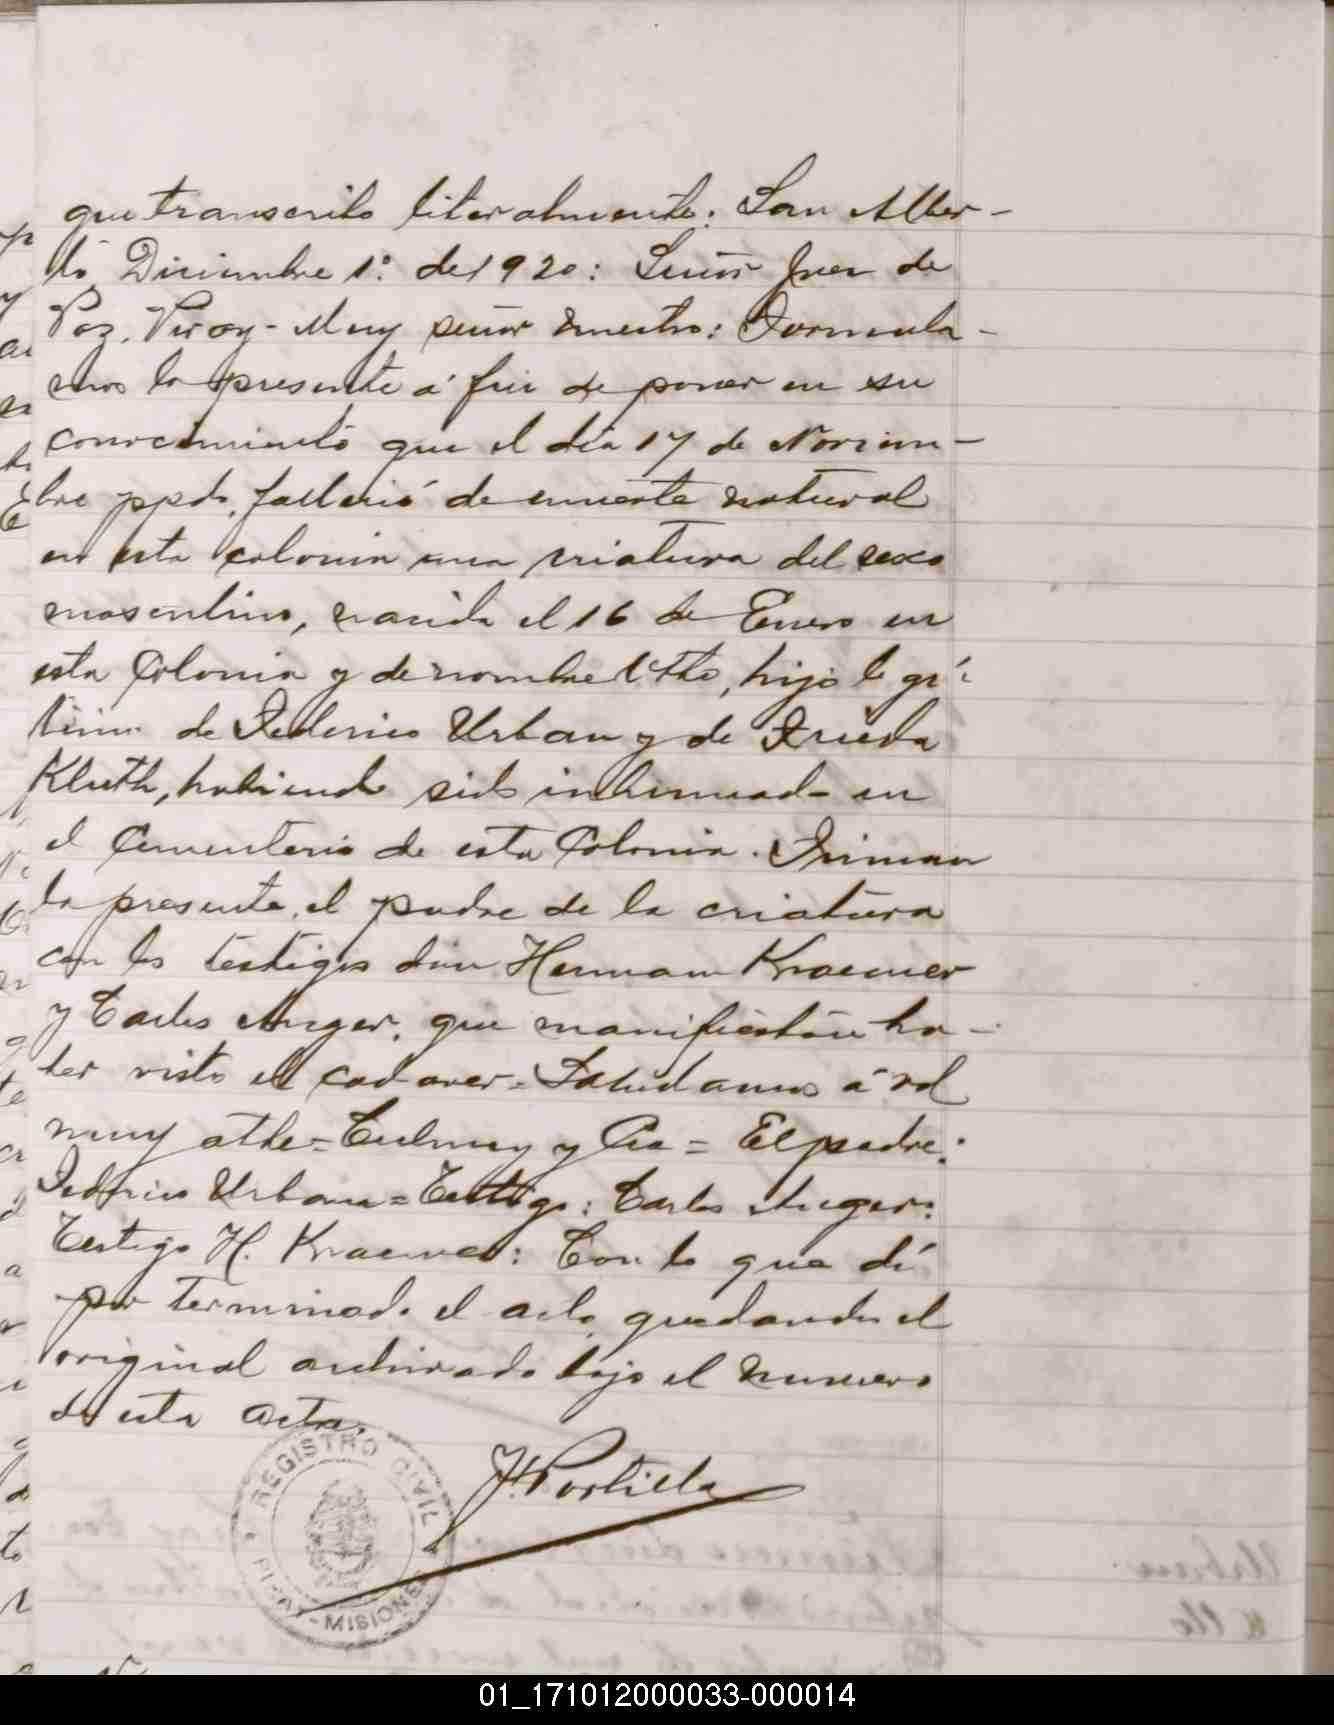 que transcrito literalmente: San Alber-
to Diciembre 1º de 1920: Señor Juez de
Paz. Piray- Muy señor nuestro: Formula-
mos la presente á fin de poner en su
conocimiento que el dia 17 de Noviem-
bre ppdo. falleció de muerte natural
en esta colonia una criatura del sexo
masculino, nacida el 16 de Enero en
esta Colonia y de nombre Otto, hijo legí-
timo de Federico Urban y de Frieda
Kluth, habiendo sido inhumado en
el Cementerio de esta Colonia. Firman
la presente, el padre de la criatura
con los testigos don Hermann Kraemer
y Carlos Anger, que manifiestan ha-
ber visto el cadaver= Saludamos á Vd
muy atte= Culmey y Cia= El padre:
Federico Urban= Testigo: Carlos Anger:
Testigo H. Kraemer: Con lo que dí
por terminado el acto, quedando el
original archivado bajo el numero
de esta acta.
J. Portilla
REGISTRO CIVIL
PIRAY-MISIONES
01_171012000033-000014